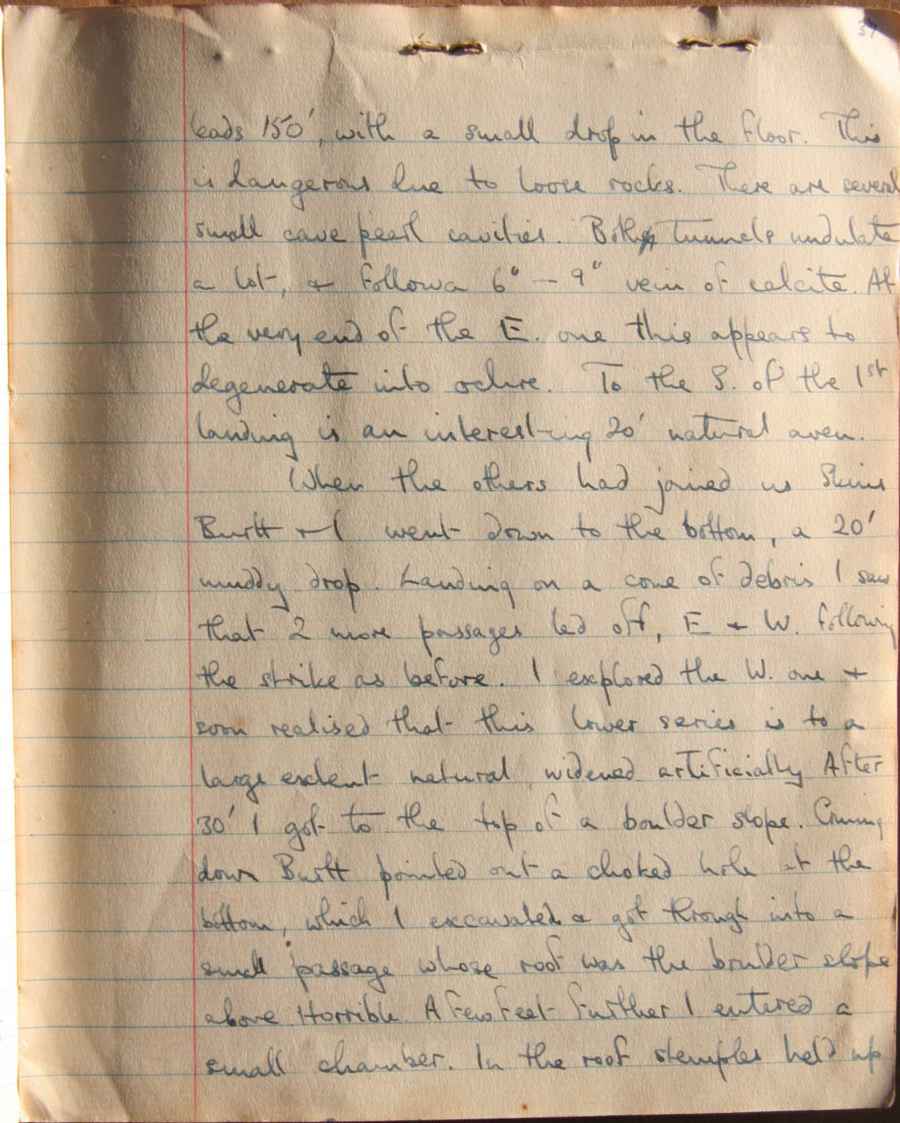 37
leads 150', with a small drop in the floor. This
is dangerous due to loose rocks. There are several
small cave pearl cavities. Both Tunnels undulate
a lot, & follow a 6" - 9" vein of calcite. At
the very end of the E. one this appears to
degenerate into ochre. To the S. of the 1st
landing is an interest-ing 20' natural aven.
When the others had joined us
Burtt & I went down to the bottom, a 20'
muddy drop. Landing on a cone of debris I saw
that 2 more passages led off, E & W. following
the strike as before. I explored the W. one &
soon realised that this lower series is to a
large extent natural, widened artificially After
30' I got to the top of a boulder slope. Coming
down Burtt pointed out a choked hole at the
bottom, which I excavated & got through into a
small passage whose roof was the boulder slope
above Horrible. A few feet further I entered a
small chamber. In the roof stemples held up